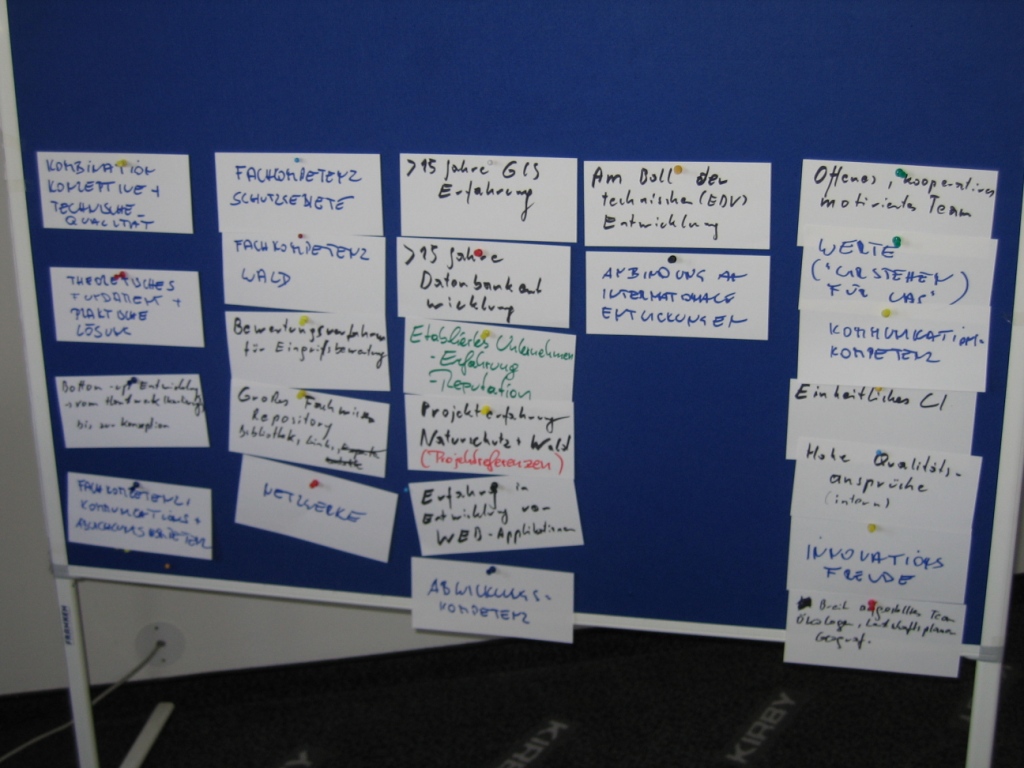 KOMBINATION
KONZEPTIVE +
TECHNISCHE-
QUALITÄT
THEORETISCHES
FUNDAMENT +
PRAKTISCHE
LÖSUNG
Bottom-up Entwicklung
bis zur Konzeption
FACHKOMPETENZ,
KOMMUNIKATIONS +
FACHKOMPETENZ
SCHUTZGEBIETE
FACHKOMPETENZ
WALD
Bewertungsverfahren
für Eingriffsberatung
Großes Fachwissen
Repository
Bibliothek, Links,
NETZWERKE
>15 Jahre GIS
Erfahrung
>15 Jahre
Datenbankent
wicklung
Etabliertes Unternehmen
-Erfahrung
-Reputation
Projekterfahrung
Naturschutz + Wald
(Projektreferenzen)
Erfahrung in
Entwicklung von
WEB-Applikationen
ABWICKLUNGS-
KOMPETENZ
Am Ball der
technischen (EDV)
Entwicklung
ANBINDUNG AN
INTERNATIONALE
ENTWICKLUNGEN
Offenes, kooperatives
motiviertes Team
WERTE
("WIR STEHEN
FÜR WAS")
KOMMUNIKATIONS-
KOMPETENZ
Einheitliches CI
Hohe Qualitäts-
ansprüche
(intern)
INNOVATIONS
FREUDE
Breit aufgestelltes Team
Ökologen, Landschaftsplaner
Geograf.
FRANKEN
KIRBY
KIRBY